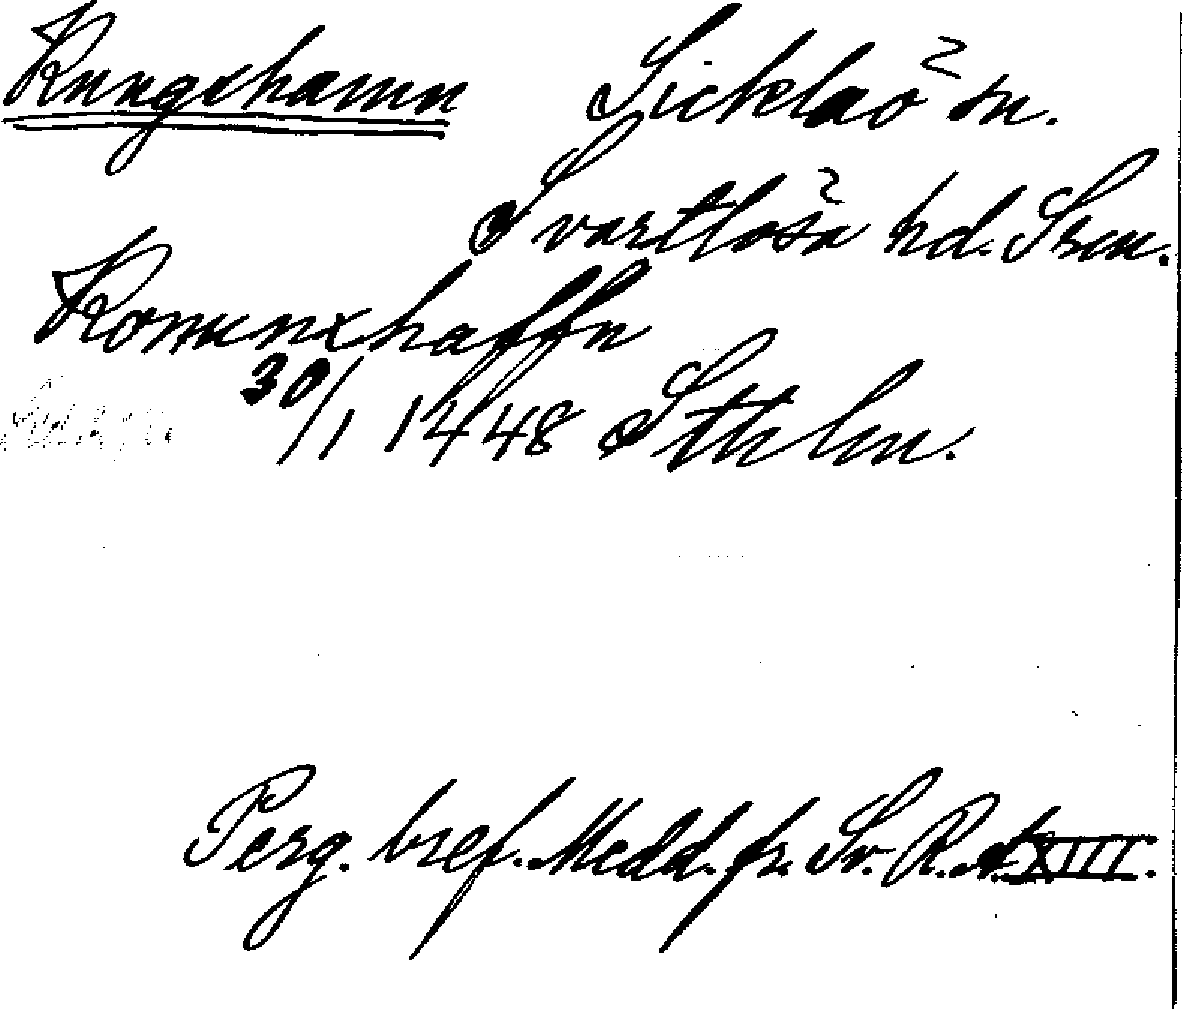 Kungshamn Sicklaö sn.
Svartlösa hd. Srm.
Konunxhaffn
30/1 1448 Sthlm.
Perg. bref. Medd. fr. Sv. R.A. XIII.